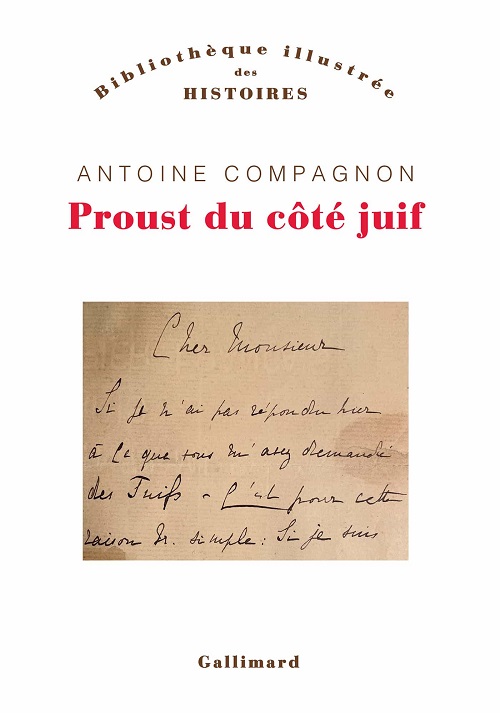 Bibliothèque illustrée
des
HISTOIRES
ANTOINE COMPAGNON
Proust du côté juif
Cher Monsieur
Si je n'ai pas répondu hier
à ce que vous m'avez demandé
des Juifs - C'est pour cette
raison tr. simple : Si je suis
Gallimard